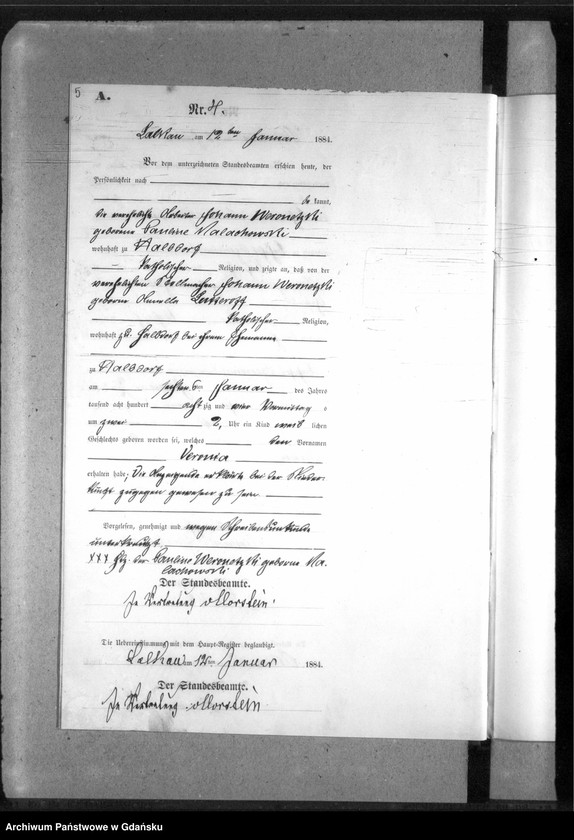 5
A.
Nr. 4.
Lalkau am 12ten Januar 1884.
Vor dem unterzeichneten Standesbeamten erschien heute, der
Persönlichkeit nach
be kannt,
die verehelichte Arbeiter Johann Weronetzki
geborene Pauline Malachowski
wohnhaft zu Halbdorf
katholischer Religion, und zeigte an, daß von der
verehelichten Stellmacher Johann Weronetzki
geborene
katholischer Religion,
wohnhaft zu Halbdorf bei ihrem Ehemanne
zu Halbdorf
am sechsten 6ten Januar des Jahres
tausend acht hundert achtzig und vier Vormittag s
um zwei 2, Uhr ein Kind weib lichen
Geschlechts geboren worden sei, welches den Vornamen
Veronia
erhalten habe; Die Anzeigende erklärte bei der Nieder-
kunft zugegen gewesen zu sein.
Vorgelesen, genehmigt und wegen Schreibensunkunde
unterkreuzt.
XXX Hdz. der Pauline Weronetzki geborene Ma-
lachowski
Der Standesbeamte.
In Vertretung Morstein.
Die Uebereinstimmung mit dem Haupt-Register beglaubigt.
Lalkau am 12ten Januar 1884.
Der Standesbeamte.
In Vertretung Morstein
Archiwum Państwowe w Gdańsku